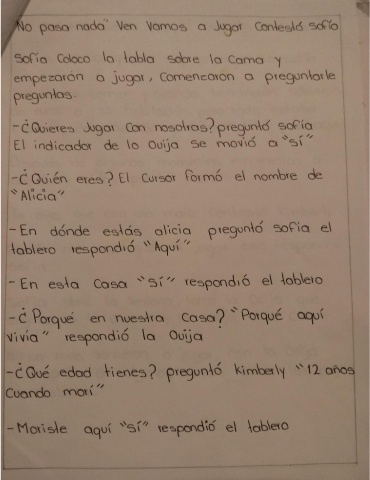 No pasa nada" Ven Vamos a Jugar Contestó Sofía
Sofía Coloco la tabla sobre la Cama y
empezarón a jugar, Comenzaron a preguntarle
preguntas.
-¿Quieres Jugar Con nosotras? preguntó Sofía
El indicador de la Ouija se movió a "sí"
-¿Quién eres? El Cursor formó el nombre de
"Alicia"
-En dónde estás alicia preguntó sofía el
tablero respondió "Aquí"
-En esta Casa "Sí" respondió el tablero
-¿Porqué en nuestra Casa? "Porqué aquí
vivía" respondió la Ouija
-¿Qué edad tienes? preguntó Kimberly "12 años
Cuando morí"
-Moriste aquí "Sí" respondió el tablero